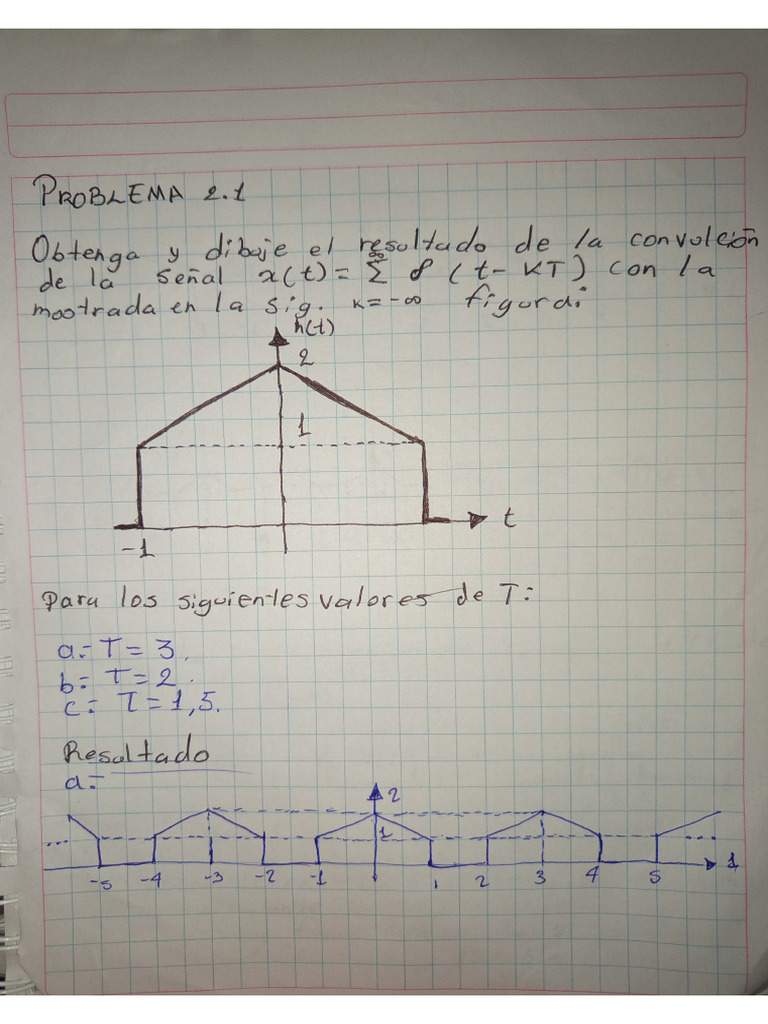 PROBLEMA 2.1
Obtenga y dibuje el resultado de la convolción
de la señal x(t) = ∞ Σ k=-∞ δ(t - KT) con la
mostrada en la sig. figura:
h(t)
2
1
t
-1
Para los siguientes valores de T:
a= T = 3.
b= T = 2.
c= T = 1,5.
Resultado
a=
2
... 1 ...
1
-5 -4 -3 -2 -1 1 2 3 4 5